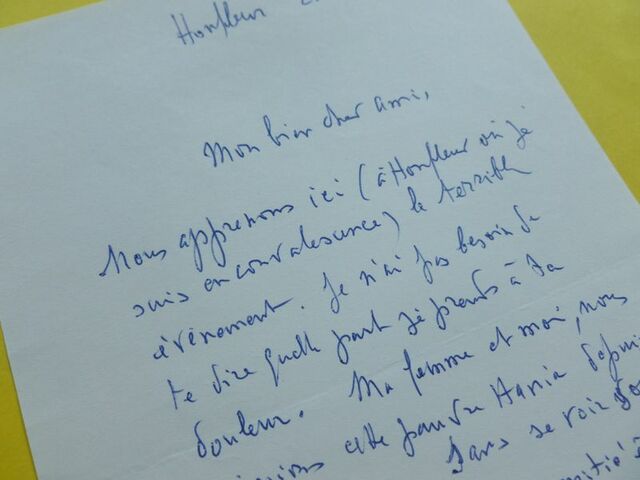 Honfleur
Mon bien cher ami,
Nous apprenons ici (à Honfleur où je
suis en convalescence) le terrible
évènement. Je n'ai pas besoin de
te dire quelle part je prends à ta
douleur. Ma femme et moi, nous
cette pauvre Hania depuis
sans se voir